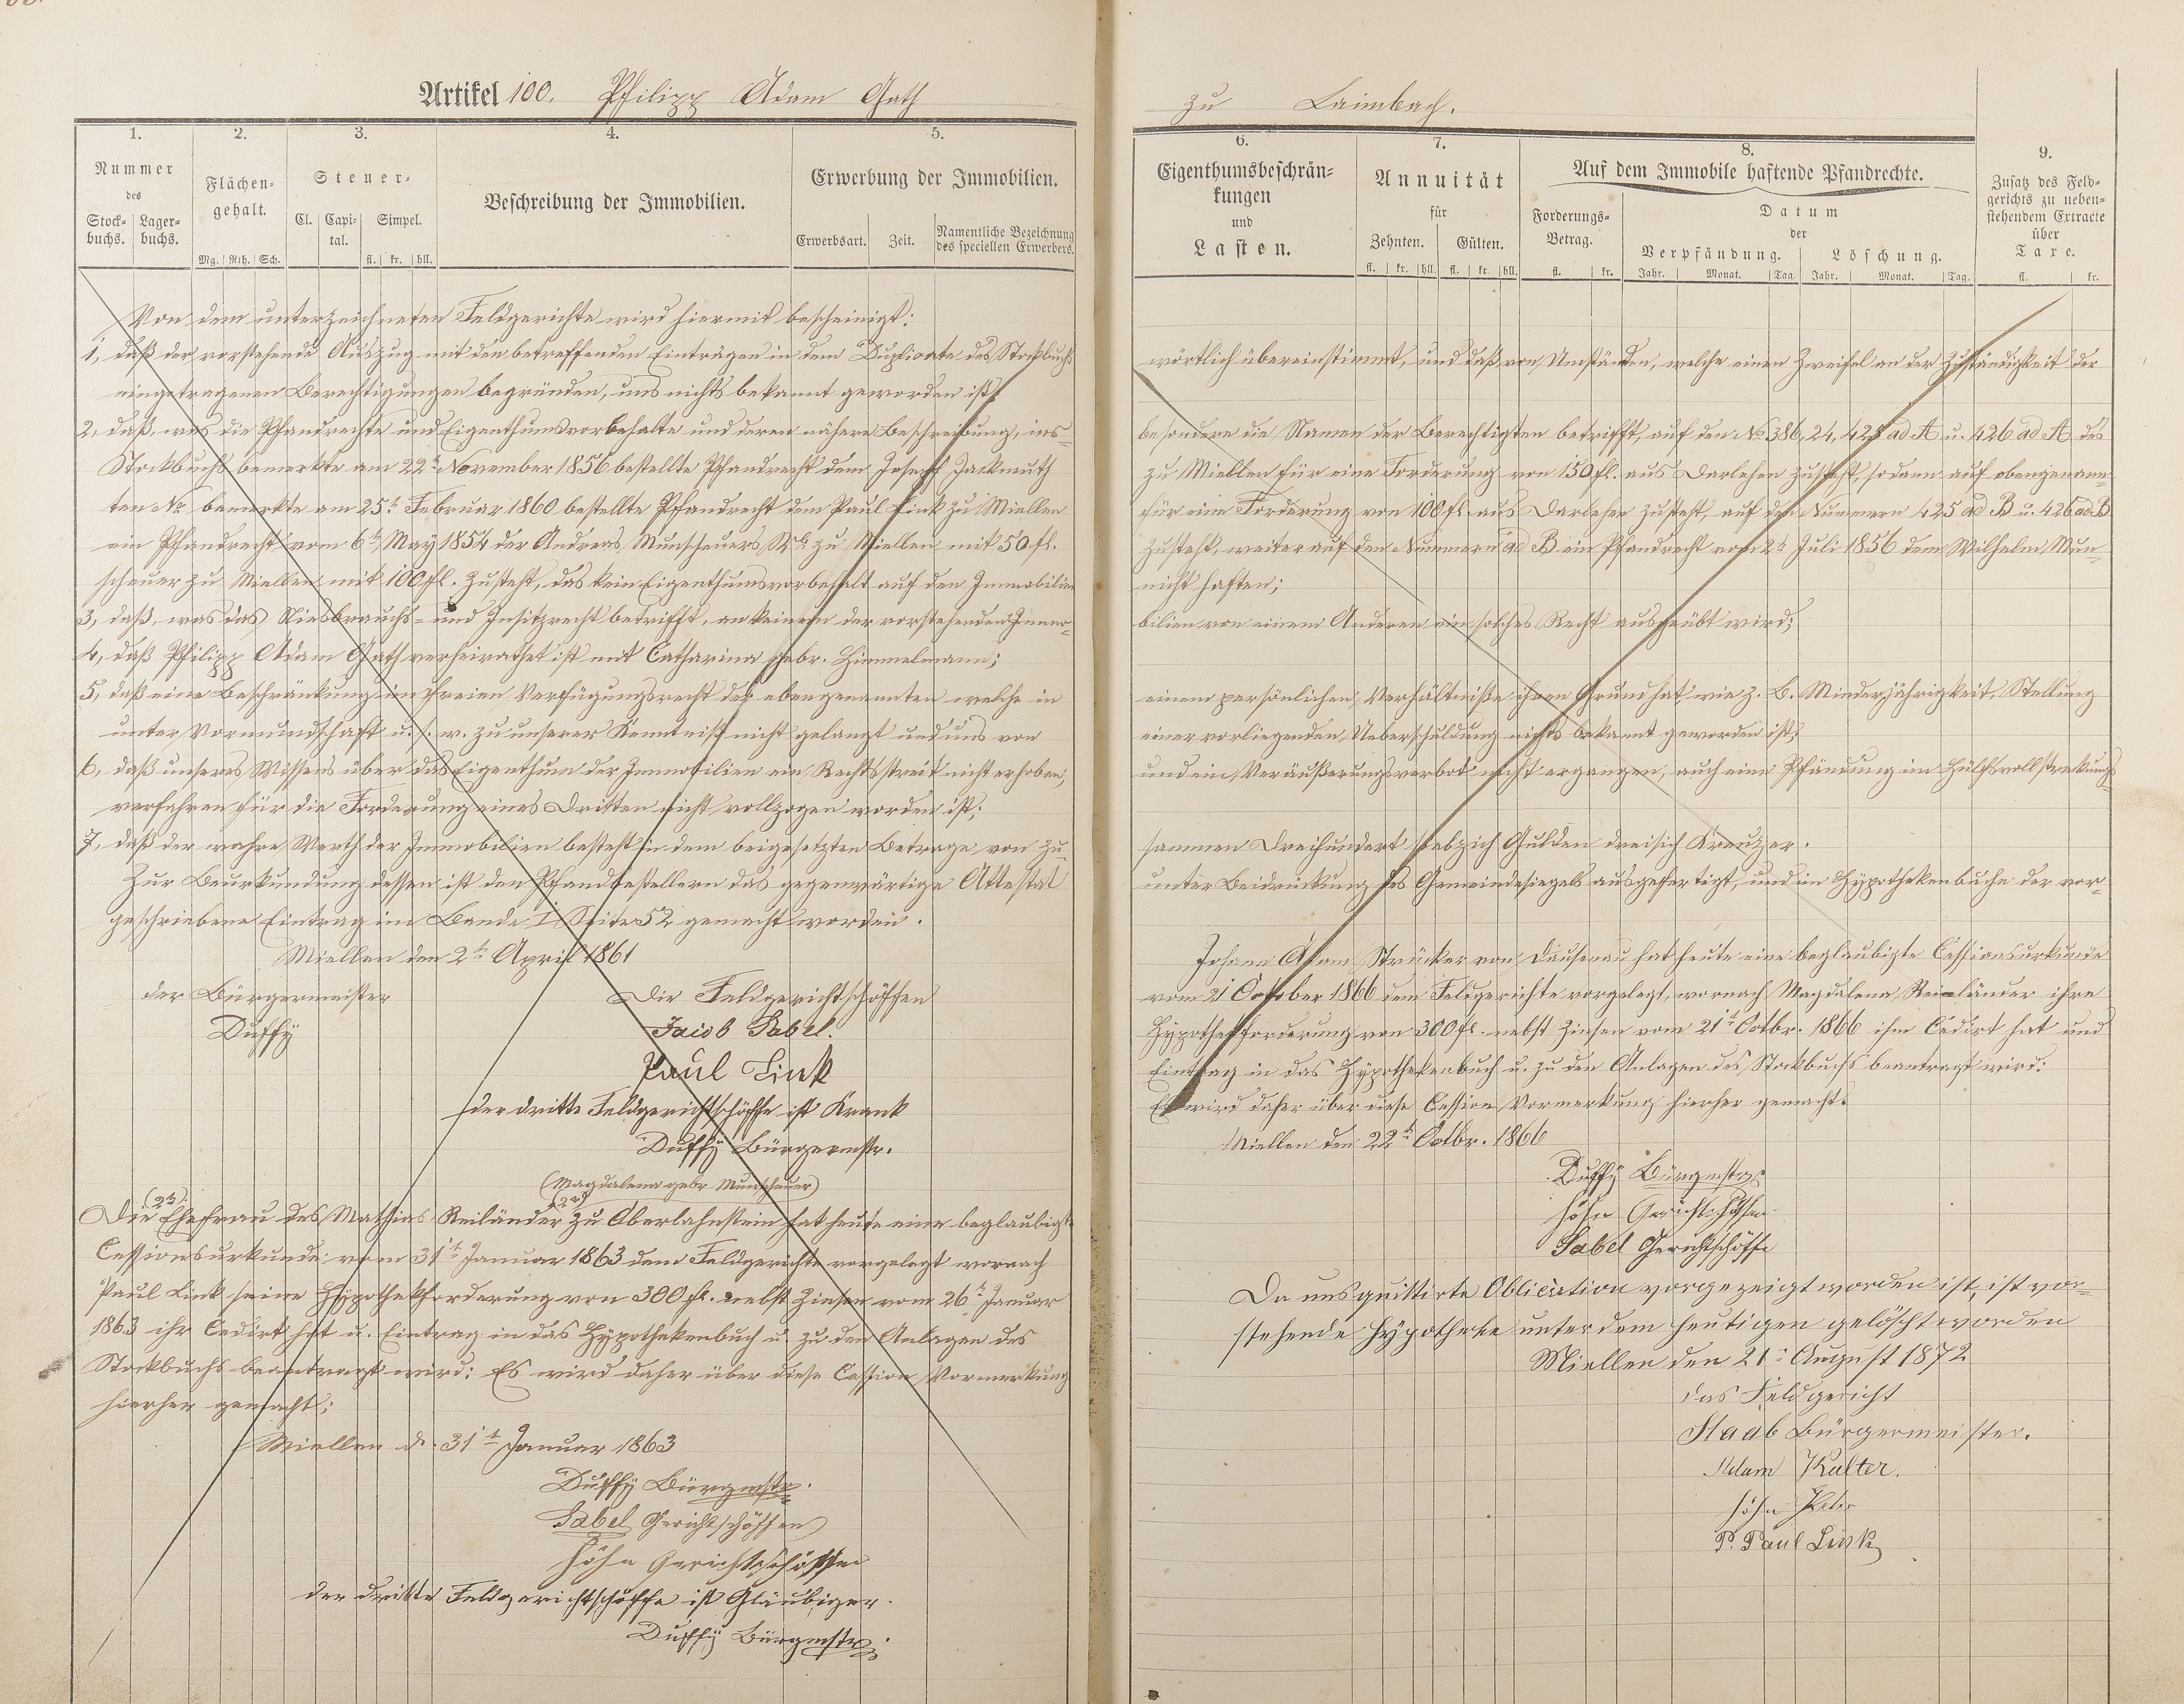 Artikel 100. Philipp Adam Gath
1.
2.
3.
4.
5.
Nummer
des
Stock-
buchs.
Lager-
buchs.
Flächen-
gehalt.
Mg. Rth. Sch.
Steuer-
Cl.
Capi-
tal.
Simpel.
fl. kr. hll.
Beschreibung der Immobilien.
Erwerbung der Immobilien.
Erwerbsart.
Zeit.
Namentliche Bezeichnung
des speciellen Erwerbers.
Von dem unterzeichneten Feldgerichte wird hiermit bescheinigt:
1, daß der vorstehende Auszug mit den betreffenden Einträgen in dem Duplicate des Stockbuchs
eingetragenen Berechtigungen begründen, uns nichts bekannt geworden ist;
2, daß, was die Pfandrechte und Eigenthumsvorbehalte und deren nähere Beschreibung, ins-
Stockbuchs bemerkte am 22t November 1856 bestellte Pfandrecht dem Joseph Jackmuth
ten No bemerkte am 25t Februar 1860 bestellte Pfandrecht dem Paul Link zu Miellen
ein Pfandrecht vom 6t May 1854 der Andreas Munscheuers zu Miellen mit 50 fl.
scheuer zu Miellen mit 100 fl. zusteht, das kein Eigenthumsvorbehalt auf den Immobilien
3, daß, was das Niesbrauchs- und Insitzrecht betrifft, an keinem der vorstehenden Immo-
4, daß Philipp Adam Gath verheirathet ist mit Catharina gebr. Himmelmann;
5, daß eine Beschränkung im freien Verfügungsrecht der ebengenannten welche in
unter Vormundschaft u. s. w. zu unserer Kenntniß nicht gelangt und uns von
6, daß unseres Wissens über das Eigenthum der Immobilien ein Rechtsstreit nicht erhoben,
verfahren für die Forderung eines Dritten nicht vollzogen worden ist;
7, daß der wahre Werth der Immobilien besteht in dem beigesetzten Betrage von zu-
Zur Beurkundung dessen ist den Pfandbestellern das gegenwärtige Attestat
geschriebene Eintrag im Bande I Seite 52 gemacht worden.
Miellen den 2t April 1861
der Bürgermeister
Duffy
Die Feldgerichtschöffen
Jacob Sabel.
Paul Link
der dritte Feldgerichtschöffe ist Krank
Duffy Bürgermstr.
(Magdalena gebr Munscheuer)
Die Ehefrau des Mathias Reiländer zu Oberlahnstein hat heute eine beglaubigte
Cessionsurkunde vom 31t Januar 1863 dem Feldgerichte vorgelegt wornach
Paul Link seine Hypothekforderung von 300 fl. nebst Zinsen vom 26t Januar
1863 ihr Cedirt hat u. Eintrag in das Hypothekenbuch u. zu den Anlagen des
Stockbuchs beantragt wird: Es wird daher über diese Cession Vormerkung
hierher gemacht:
Miellen d. 31t Januar 1863
Duffy Bürgmstr.
Sabel Gerichtschöffen
Höhn Gerichtschöffen
der dritte Feldgerichtschöffe ist Gläubiger.
Duffy Bürgmstr.
zu Laimbach.
6.
7.
8.
9.
Eigenthumsbeschrän-
kungen
und
Lasten.
Annuität
für
Zehnten. Gülten.
fl. kr. hll. fl. kr. hll.
Auf dem Immobile haftende Pfandrechte.
Forderungs-
Betrag.
fl. kr.
Datum
der
Verpfändung. Löschung.
Jahr. Monat. Tag. Jahr. Monat. Tag.
Zusatz des Feld-
gerichts zu neben-
stehendem Extracte
über
Taxe.
fl. kr.
wörtlich übereinstimmt, und daß von Umständen, welche einen Zweifel an der Zuständigkeit der
besondere die Namen der Berechtigten betrifft, auf den No 386, 24, 425 ad A u. 426 ad A des
zu Miellen für eine Forderung von 150 fl. aus Darlehen zusteht, sodann auf obengenann-
für eine Forderung von 100 fl. aus Darlehen zusteht, auf den Nummern 425 ad B u. 426 ad B
zusteht, weiter auf den Nummern ad B ein Pfandrecht vom 2t Juli 1856 dem Wilhelm Mun-
nicht haften;
bilien von einem Anderen ein solches Recht ausgeübt wird;
einem persönlichen Verhältniße ihren Grund hat, wie z. B. Minderjährigkeit, Stellung
einer vorliegenden Ueberschuldung nichts bekannt geworden ist;
und ein Veräußerungsverbot nicht ergangen, auch eine Pfändung im Hülfsvollstreckungs-
sammen Dreihundert siebzich Gulden dreisich Kreutzer.
unter Beidrückung des Gemeindesiegels ausgefertigt, und im Hypothekenbuche der vor-
Johann Adam Strücker von Dausenau hat heute eine beglaubigte Cessionsurkunde
vom 21 October 1866 dem Feldgerichte vorgelegt, wornach Magdalena Reiländer ihre
Hypothekforderung von 300 fl. nebst Zinsen vom 21t Octbr. 1866 ihm Cedirt hat und
Eintrag in das Hypothekenbuch u. zu den Anlagen des Stockbuchs beantragt wird:
Es wird daher über diese Cession Vormerkung hierher gemacht.
Miellen den 22t Octbr. 1866
Duffy Bürgmstr.
Höhn Gerichtschöffen
Sabel Gerichtschöffe
Da uns quittirte Oblication vorgezeigt worden ist, ist vor-
stehende Hypotheke unter dem heutigen gelöscht worden
Miellen den 21t August 1872
das Feldgericht
Staab Bürgermeister.
Adam Kalter.
Höhn Peter
P. Paul Link